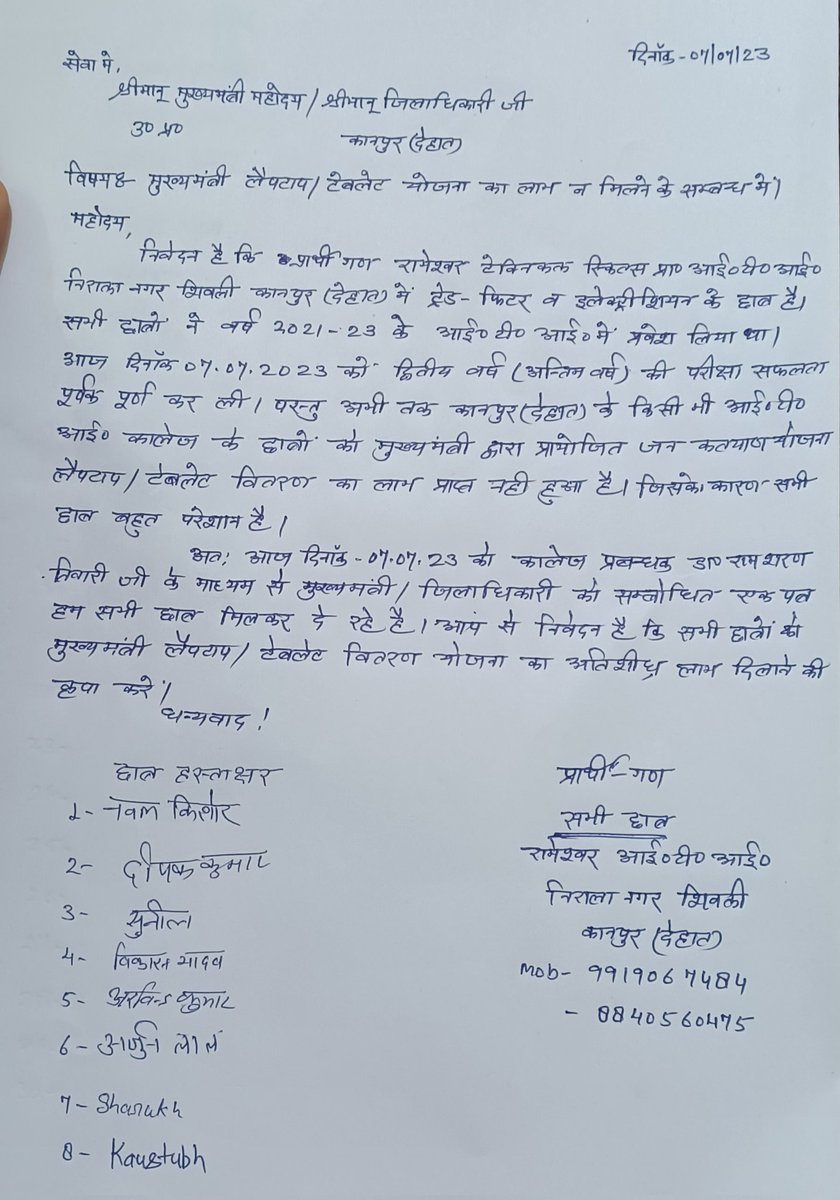 दिनॉक - 07/07/23
सेवा मे,
श्रीमान् मुख्यमंत्री महोदय / श्रीमान् जिलाधिकारी जी
उ० प्र० कानपुर (देहात)
विषयः मुख्यमंत्री लैपटाप / टेबलेट योजना का लाभ न मिलने के सम्बन्ध में।
महोदय,
निवेदन है कि प्रार्थी गण रामेश्वर टेक्निकल स्किल्स प्रा० आई० टी० आई०
निराला नगर शिवली कानपुर (देहात) में ट्रेड - फिटर व इलेक्ट्रीशियन के छात्र है।
सभी छात्रों ने वर्ष 2021-23 के आई० टी० आई० में प्रवेश लिया था।
आज दिनॉक 07.07.2023 को द्वितीय वर्ष (अन्तिम वर्ष) की परीक्षा सफलता
पूर्वक पूर्ण कर ली। परन्तु अभी तक कानपुर (देहात) के किसी भी आई० टी०
आई० कालेज के छात्रों को मुख्यमंत्री द्वारा प्रायोजित जन कल्याण योजना
लैपटाप / टेबलेट वितरण का लाभ प्राप्त नही हुआ है। जिसके कारण सभी
छात्र बहुत परेशान है।
अतः आज दिनॉक - 07.07.23 को कालेज प्रबन्धक डा० रामशरण
तिवारी जी के माध्यम से मुख्यमंत्री / जिलाधिकारी को सम्बोधित एक पत्र
हम सभी छात्र मिलकर दे रहे है। आप से निवेदन है कि सभी छात्रों को
मुख्यमंत्री लैपटाप / टेबलेट वितरण योजना का अतिशीघ्र लाभ दिलाने की
कृपा करें।
धन्यवाद !
छात्र हस्ताक्षर
1- नवल किशोर
2- दीपक कुमार
3- सुनील
4- विकास यादव
5- अरविन्द कुमार
6- अर्जुन लाल
7- Sharukh
8- Kaustubh
प्रार्थी - गण
सभी छात्र
रामेश्वर आई० टी० आई०
निराला नगर शिवली
कानपुर (देहात)
mob- 9919067484
- 8840560475